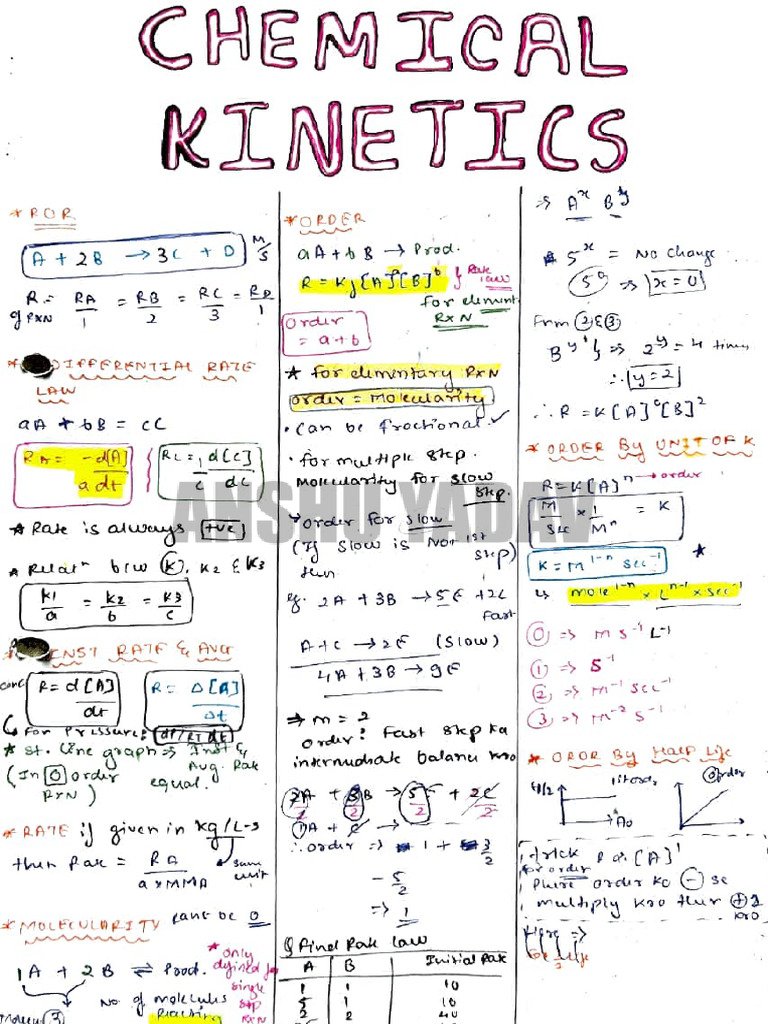 CHEMICAL
KINETICS
* ROR
A + 2B → 3C + D M/S
R = RA/1 = RB/2 = RC/3 = RD/1
of RXN
* DIFFERENTIAL RATE
LAW
aA + bB = cC
RA = -d[A]/a dt
RC = 1/c d[C]/dt
* Rate is always +ve
* Relatn b/w K1, K2 & K3
K1/a = K2/b = K3/c
* INST RATE & AVG
conc R = d[A]/dt R = Δ[A]/Δt
↳ for Pressure: dP/RT dt
* St. line graph ⇒ Inst &
Avg. Rate
(In 0 order equal.
RXN)
* RATE if given in kg/L-s
then Rate = RA/a×MMA same unit
* MOLECULARITY cant be 0
1A + 2B ⇌ Prod.
* only
defined for
single
step
RXN
No. of molecules
Reacting
Molecu 3
* ORDER
aA + bB → Prod.
R = Kf [A]^a [B]^b } Rate law
for element
RXN
Order
= a + b
* for elementary RXN
order = molecularity
• Can be fractional
• for multiple step
molecularity for slow
step.
ANSHU YADAV
order for slow
(If slow is Not 1st
step)
then
eg. 2A + 3B → 5E + 2C
fast
A + C → 2E (Slow)
4A + 3B → 9E
⇒ m = 2
order: Fast step ka
intermediate balance kro
2A/2 + 3B/2 → 5E/2 + 2C/2
1A + C →
∴ order ⇒ 1 + 3/2
- 5/2
⇒ 1
Q Find Rate law
A B Initial Rate
1 1 10
5 1 10
5 2 40
⇒ A^x B^y
5^x = No change
5^0 ⇒ x = 0
From 2 & 3
B^y } ⇒ 2^y = 4 times
∴ y = 2
∴ R = K[A]^0[B]^2
* ORDER By UNIT OF K
R = K[A]^n → order
M/Sec × 1/M^n = K
K = M^1-n Sec^-1 *
↳ mole^1-n × L^n-1 × Sec^-1
0 ⇒ M S^-1 L^-1
1 ⇒ S^-1
2 ⇒ M^-1 Sec^-1
3 ⇒ M^-2 S^-1
* OROR By Half Life
t1/2 1st order 0 order
A0
trick
for order
[A]^1
Phle order ko - se
multiply kro then + 1
kro
Here ⇒